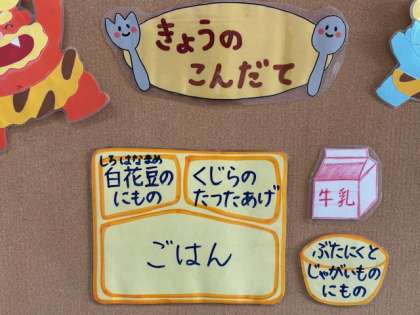 きょうの
こんだて
しろ はなまめ
白花豆の
にもの
くじらの
たったあげ
牛乳
ごはん
ぶたにくと
じゃがいもの
にもの